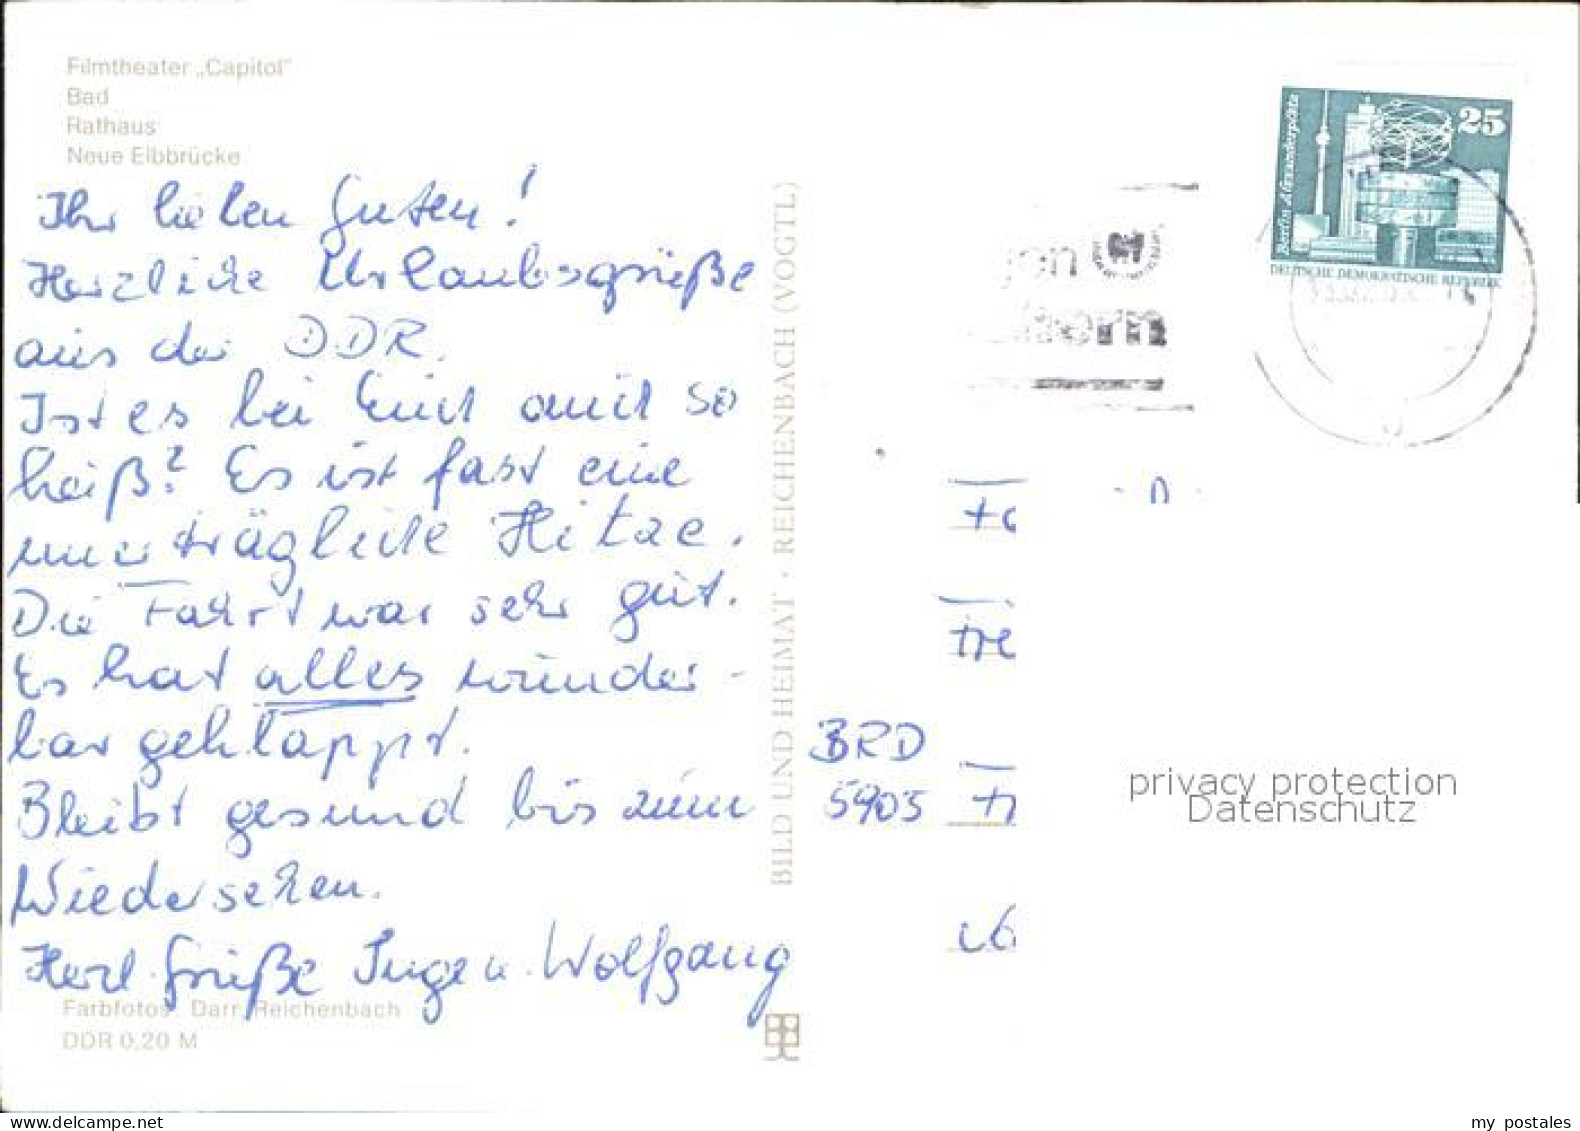 Filmtheater „Capitol"
Bad
Rathaus
Neue Elbbrücke
Ihr lieben Guten!
Herzliche Urlaubsgrüße
aus der DDR.
Ist es bei Euch auch so
heiß? Es ist fast eine
unerträgliche Hitze.
Die Fahrt war sehr gut.
Es hat alles wunder-
bar geklappt.
Bleibt gesund bis zum
Wiedersehen.
Herzl. Grüße Inge u. Wolfgang
Farbfotos: Darr, Reichenbach
DDR 0,20 M
BILD UND HEIMAT · REICHENBACH (VOGTL)
Berlin Alexanderplatz
25
DEUTSCHE DEMOKRATISCHE REPUBLIK
BRD
5905
privacy protection
Datenschutz
www.delcampe.net
my postales